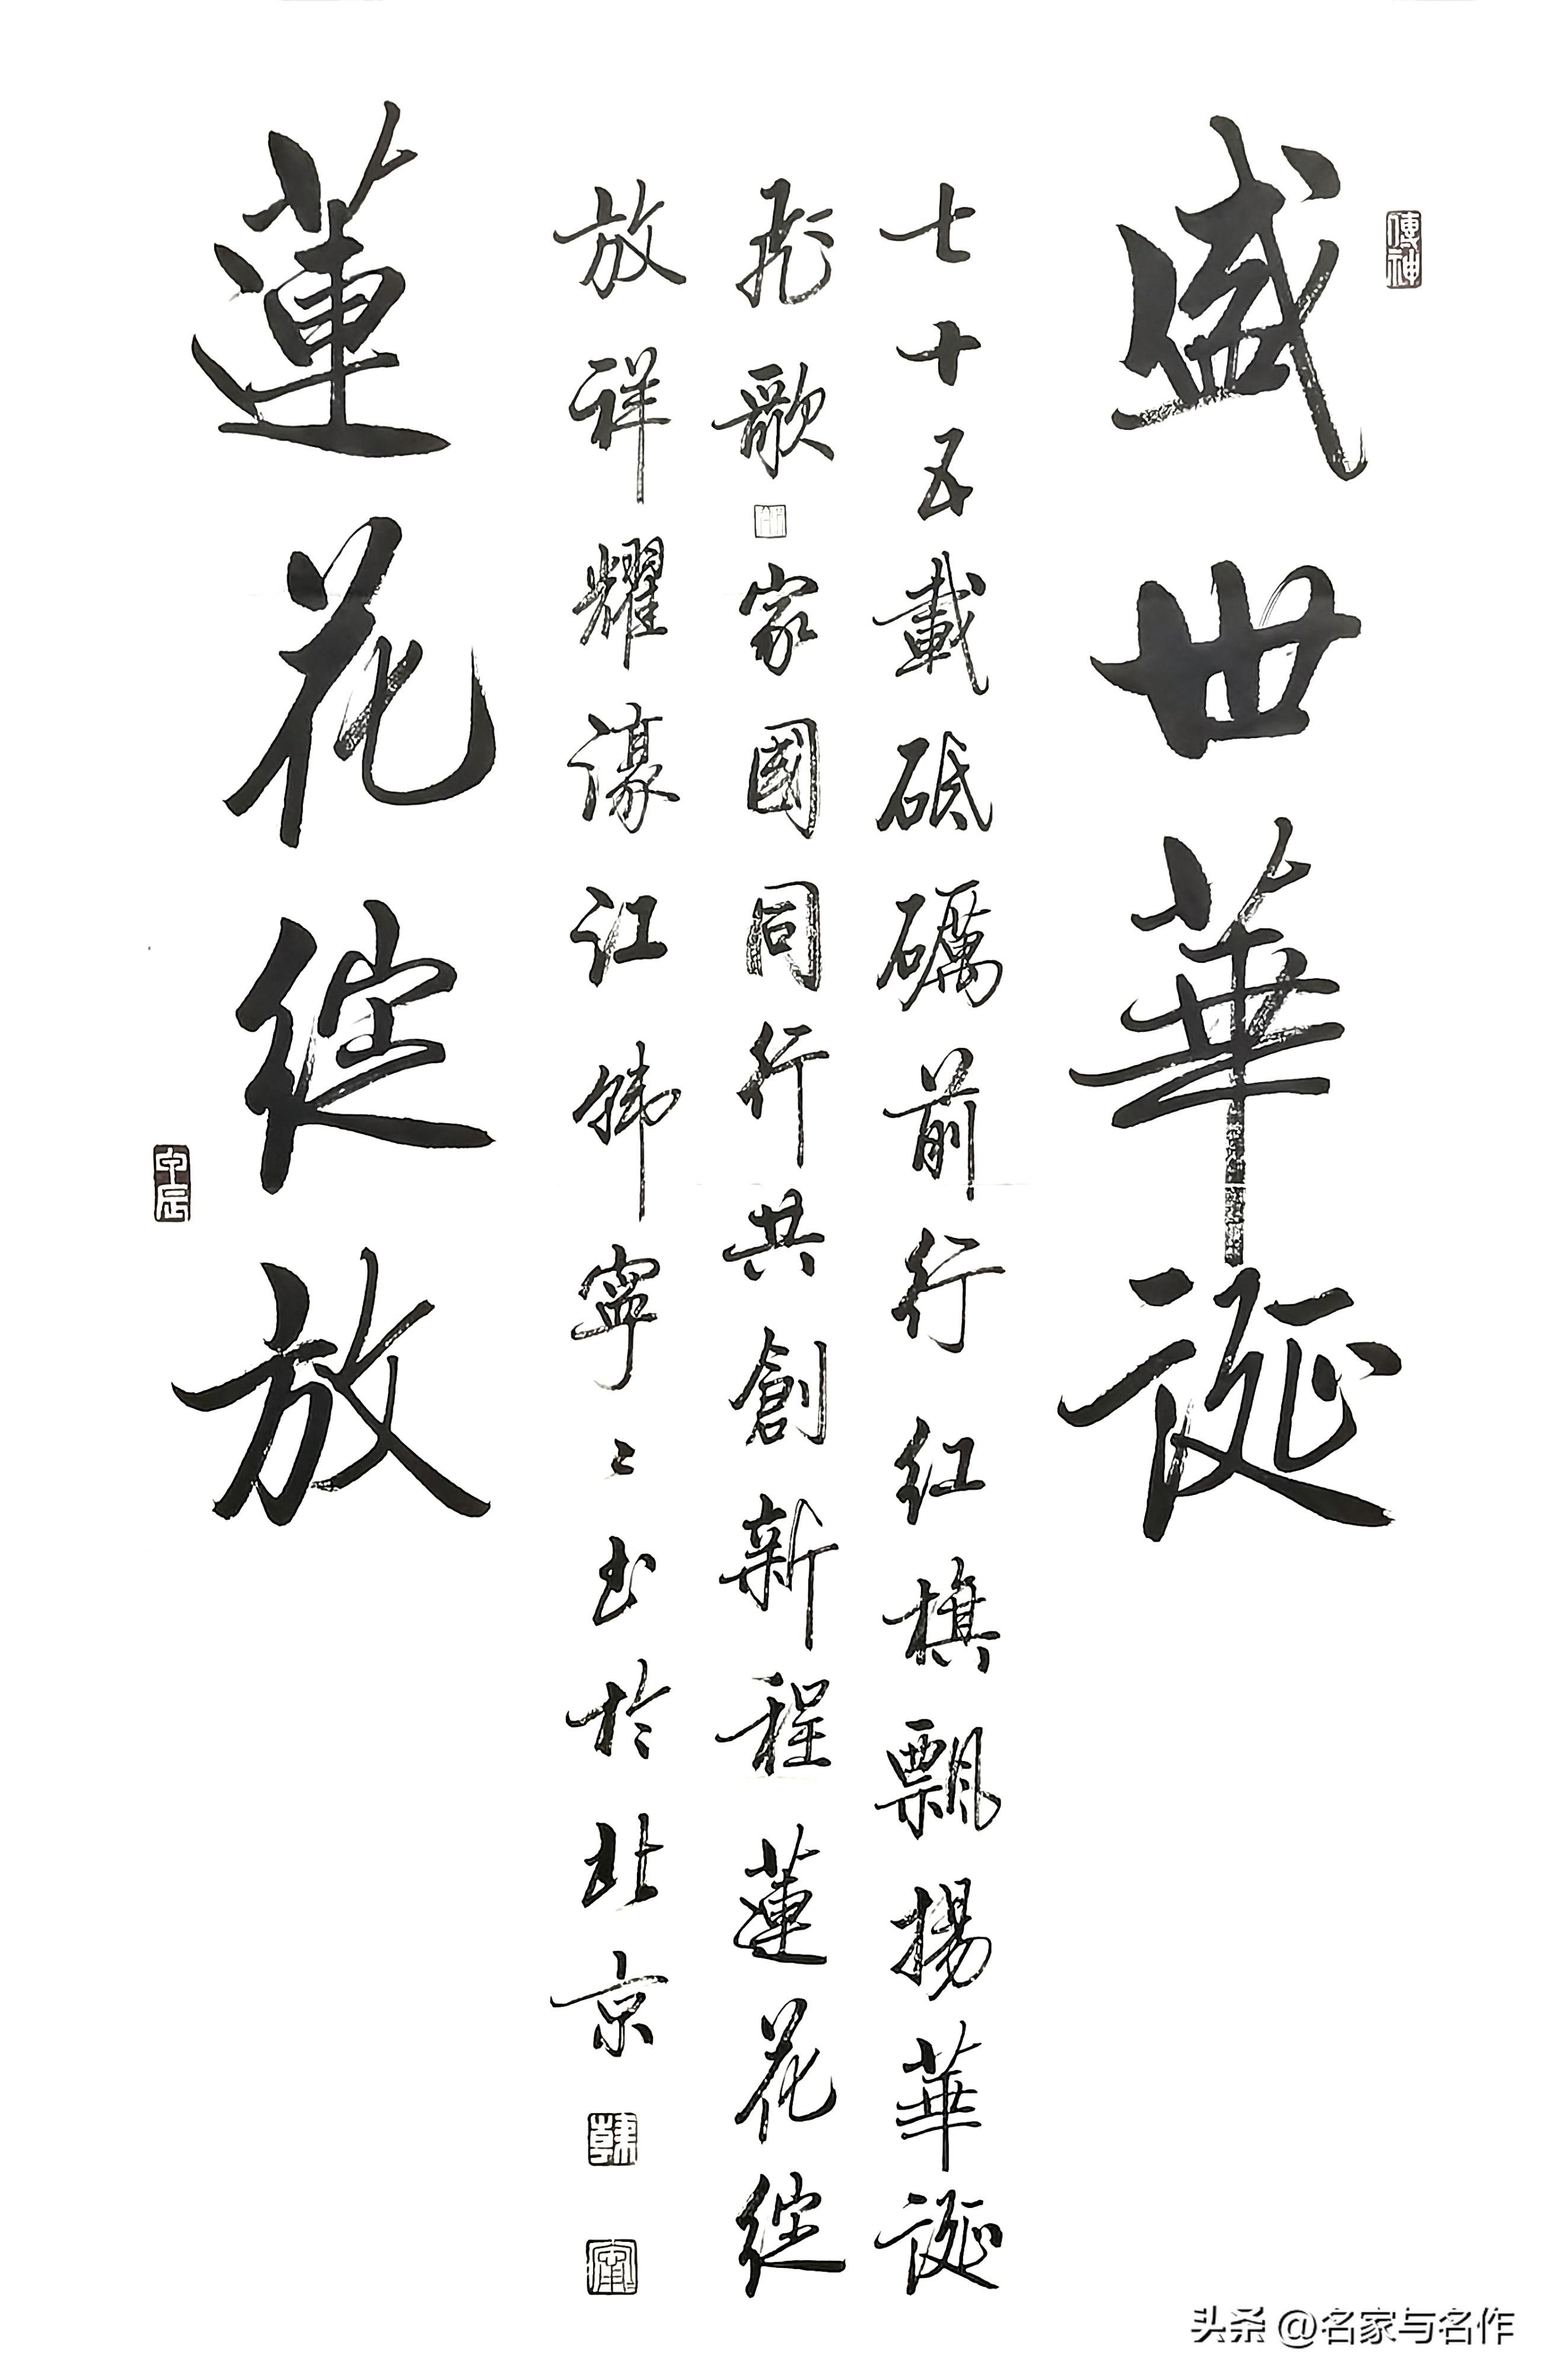 傳神
盛世華誕
七十五載砥礪前行红旗飄揚華誕
飛歌家國同行共創新程蓮花綻
放祥耀濠江韩寧〻书於北京
韓
寧
蓮花綻放
甲辰
头条 @名家与名作